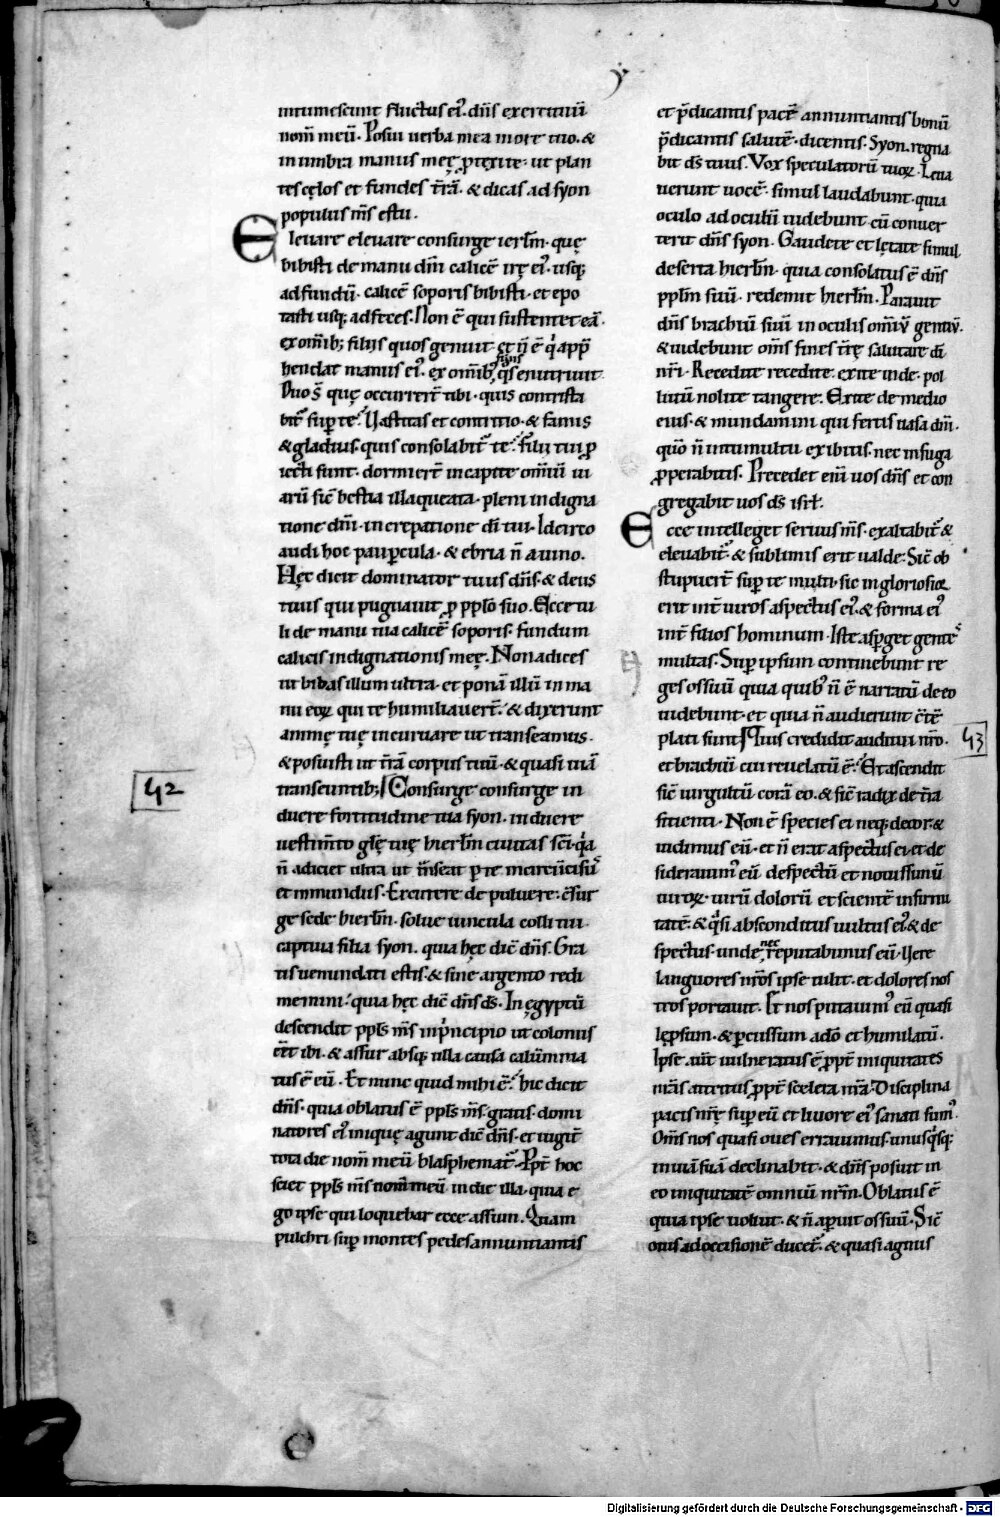 y
intumescunt fluctus ei᷒. dn̄s exercituū
nom̄ meū. Posui uerba mea in ore tuo. &
in umbra manus meę ꝓtexi te. ut plan
tes cęlos et fundes t̄rā. & dicas ad syon
populus m̄s es tu.
Eleuare eleuare consurge ierl̄m. quę
bibisti de manu dn̄i calicē irę ei᷒. usq;
ad fundū. calicē soporis bibisti. et epo
tasti usq; ad feces. Non ē qui sustentet eā
ex om̄ib; filiis quos genuit. et n̄ ē q͛ app̄
hendat manus ei᷒. ex om̄ib; filiis q̄s enutriuit.
Duo s̄ quę occurrer̄t tibi. quis contrista
bit̄ sup̱ te. Uastitas et contritio. & famis
& gladius. quis consolabit̄ te. filii tui p̱
iecti sunt. dormier̄t in capite om̄iū ui
arū sic̄ bestia illaqueata. pleni indigna
tione dn̄i. increpatione dī tui. Idcirco
audi hoc paup̱cula. & ebria n̄ a uino.
Hęc dicit dominator tuus dn̄s. & deus
tuus qui pugnauit ꝓ pp̄lo suo. Ecce tu
li de manu tua calicē soporis. fundum
calicis indignationis meę. Non adicies
ut bibas illum ultra. et ponā illū in ma
nu eoꝝ qui te humiliauer̄t. & dixerunt
animę tuę incuruare ut transeamus.
& posuisti ut t̄rā corpus tuū. & quasi uiā
transeuntib;. Consurge consurge in
42
duere fortitudine tua syon. induere
uestim̄to gl̄ę tuę hierl̄m ciuitas sc̄i. q͛a
n̄ adiciet ultra ut t̄nseat p̱ te incircūcisus
et inmundus. Excutere de puluere. c̄sur
ge sede hierl̄m. solue uincula colli tui
captiua filia syon. quia hęc dic̄ dn̄s. Gra
tis uenundati estis. & sine argento redi
memini. quia hęc dic̄ dn̄s ds̄. In ęgyptū
descendit ppl̄s m̄s in p͛ncipio ut colonus
ēēt ibi. & assur absq; ulla causa calūmnia
tus ē eū. Et nunc quid mihi ē. hic dicit
dn̄s. quia oblatus ē ppl̄s m̄s gratis. domi
natores ei᷒ inique agunt dic̄ dn̄s. et iugit̄
tota die nom̄ meū blasphemat̄. Ppt̄ hoc
sciet ppl̄s m̄s nom̄ meū in die illa. quia e
go ipse qui loquebar ecce assum. Quam
pulchri sup̱ montes pedes annuntiantis
et p̄dicantis pacē annuntiantis bonū
p̄dicantis salutē. dicentis. Syon. regna
bit ds̄ tuus. Vox speculatorū tuoꝝ. Leua
uerunt uocē. simul laudabunt. quia
oculo ad oculū uidebunt cū conuer
terit dn̄s syon. Gaudete et lętate simul
deserta hierl̄m. quia consolatus ē dn̄s
ppl̄m suū. redemit hierl̄m. Parauit
dn̄s brachiū suū in oculis om̄iū gentiū.
& uidebunt om̄s fines t̄rę salutare dī
nr̄i. Recedite recedite. exite inde. pol
lutū nolite tangere. Exite de medio
eius. & mundamini qui fertis uasa dn̄i.
quō n̄ in tumultu exibitis. nec in fuga
ꝓperabitis. Precedet enī uos dn̄s et con
gregabit uos ds̄ isrl̄.
Ecce intelleget seruus m̄s. exaltabit̄ &
eleuabit̄. & sublimis erit ualde. Sic̄ ob
stupuer̄t sup̱ te multi. sic ingloriosus
erit int̄ uiros aspectus ei᷒. & forma ei᷒
int̄ filios hominum. Iste asp̱get gentes
multas. Sup̱ ipsum continebunt re
ges os suū quia quib; n̄ ē narratū de eo
uidebunt. et quia n̄ audierunt c̄tē
plati sunt. Quis credidit auditui nr̄o.
43
et brachiū cui reuelatū ē. Et ascendit
sic̄ uirgultū corā eo. & sic̄ radix de t̄ra
sitienti. Non ē species ei neq; decor. &
uidimus eū. et n̄ erat aspectus ei. et de
siderauim᷒ eū despectū et nouissimū
uiroꝝ. uirū dolorū et scientē infirmi
tatē. & q͛si absconditus uultus ei᷒ & de
spectus. unde nec reputabimus eū. Uere
languores nr̄os ipse tulit. et dolores nos
tros portauit. Et nos putauim᷒ eū quasi
lępsum. & p̱cussum a dō et humilatū.
Ipse aūt uulneratus ē ꝓpt̄ iniquitates
nr̄as attritus ꝓpt̄ scelera nr̄a. Disciplina
pacis nr̄ę sup̱ eū et liuore ei᷒ sanati sum᷒.
Om̄s nos quasi oues errauimus. unusq͛sq;
in uiā suā declinabit. & dn̄s posuit in
eo iniquitatē omniū nr̄m. Oblatus ē
quia ipse uoluit. & n̄ aꝑuit os suū. Sic̄
ouis ad occisionē ducet̄. & quasi agnus
Digitalisierung gefördert durch die Deutsche Forschungsgemeinschaft - DFG